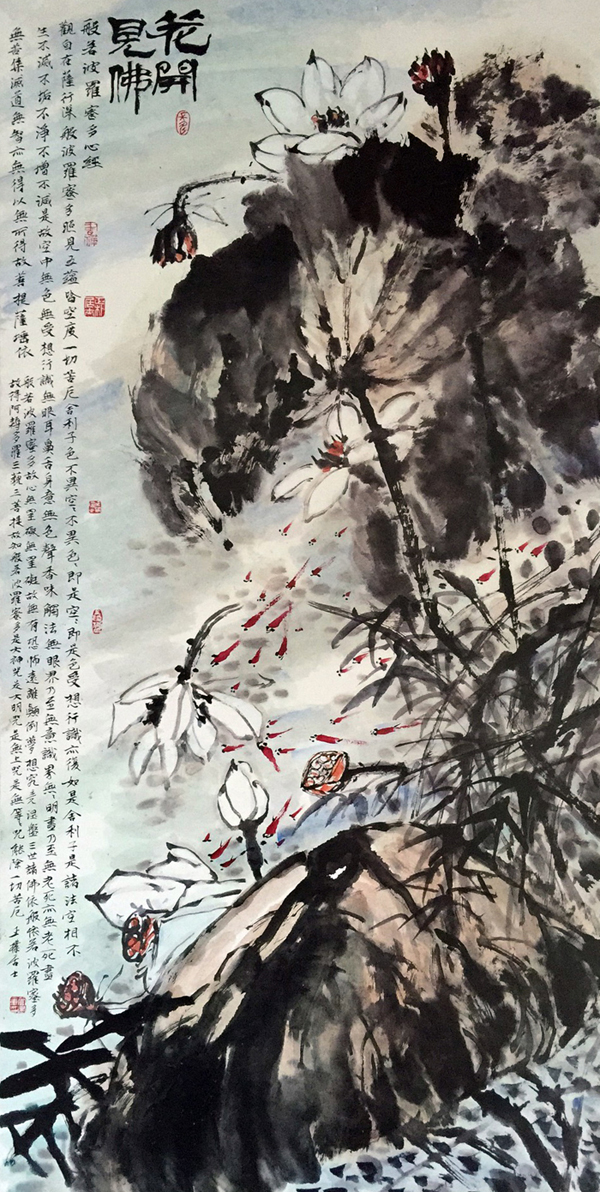 花開
見佛
般若波羅蜜多心經
觀自在薩行深般波羅蜜多照見五蘊皆空度一切苦厄舍利子色不異空、不異色、即是空、即是色受想行識亦復如是舍利子是諸法空相不
生不滅不垢不淨不增不減是故空中無色無受想行識無眼耳鼻舌身意無色聲香味觸法無眼界乃至無意識界無、明盡乃至無老死亦無老死盡
無苦集滅道無智亦無得以無所得故菩提薩埵依
般若波羅蜜多故心無罣礙無罣礙故無有恐怖遠離顛倒夢想究竟涅盤三世諸佛依般依若波羅蜜多
故得阿耨多羅三藐三菩提故知般若波羅蜜多是大神咒是大明咒是無上咒是無等咒能除一切苦厄 華居士